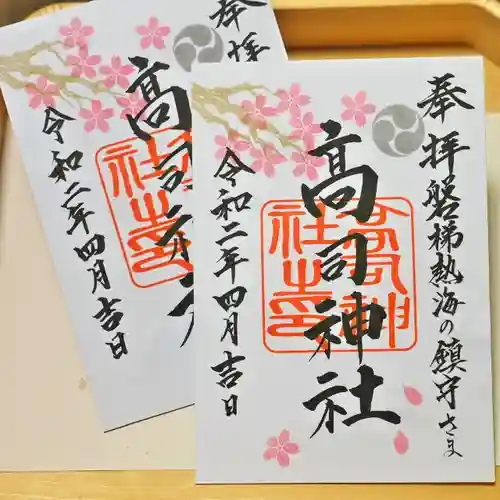 奉拝 磐梯熱海の鎮守さま
高司神社
令和二年四月吉日
高司神社之印
奉拝
高司神社
令和二年四月吉日